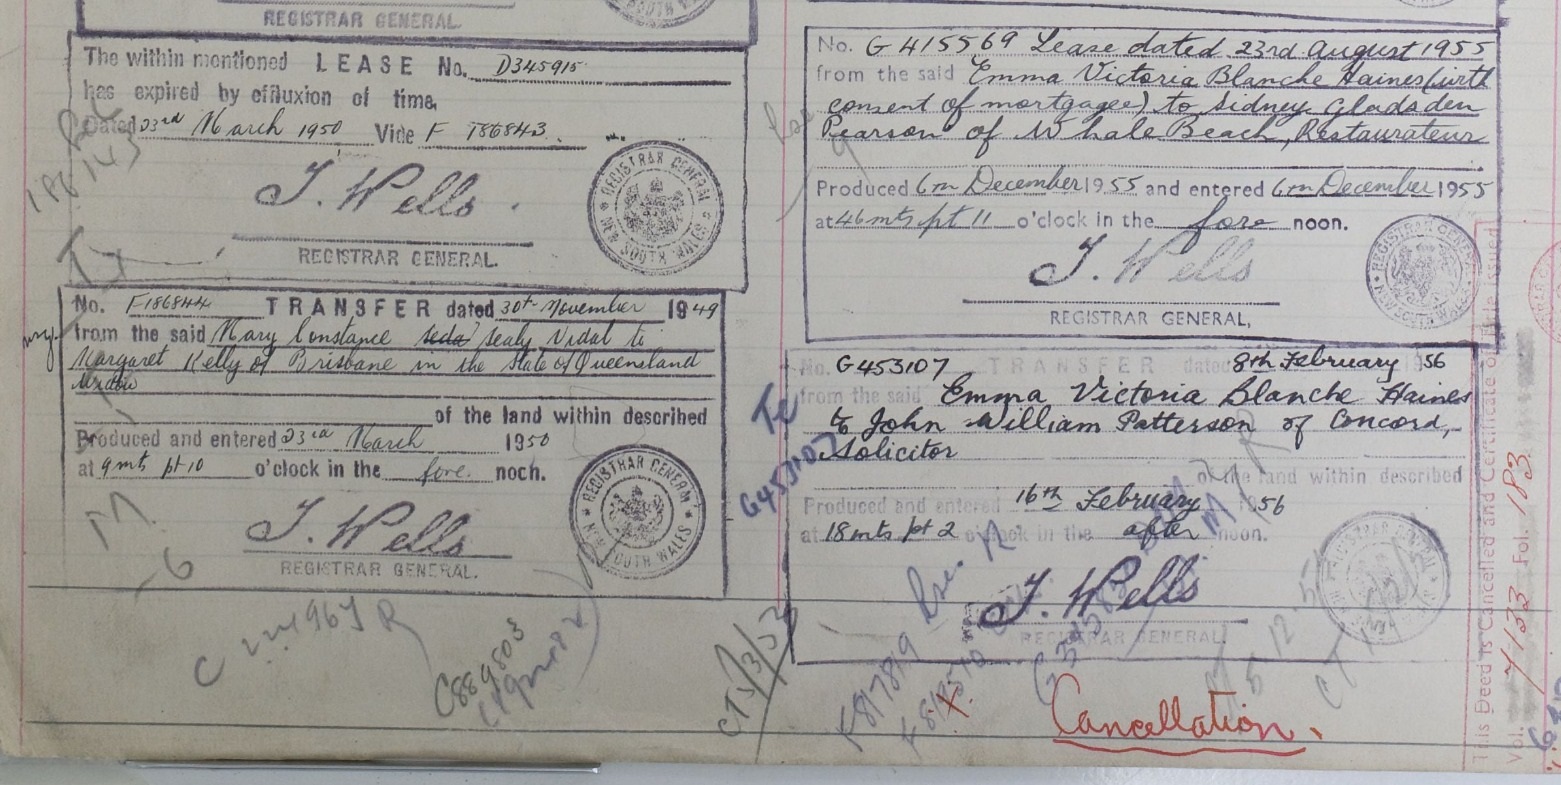 REGISTRAR GENERAL.
The within mentioned LEASE No. D345915
has expired by effluxion of time,
Dated 23rd March 1950 Vide F 186843
J. Wells
REGISTRAR GENERAL.
REGISTRAR GENERAL
NEW SOUTH WALES
186143
No. F186844 TRANSFER dated 30th November 1949
from the said Mary Constance seda Sealy Vidal to
Margaret Kelly of Brisbane in the State of Queensland
Widow
of the land within described
Produced and entered 23rd March 1950
at 9 mts pt 10 o'clock in the fore noon.
J. Wells
REGISTRAR GENERAL.
REGISTRAR GENERAL
NEW SOUTH WALES
M.
6
R
C889803
No. G 415569 Lease dated 23rd August 1955
from the said Emma Victoria Blanche Haines (with
consent of mortgagee) to Sidney Gladsden
Pearson of Whale Beach, Restaurateur
Produced 6th December 1955 and entered 6th December 1955
at 46 mts pt 11 o'clock in the fore noon.
J. Wells
REGISTRAR GENERAL,
REGISTRAR GENERAL
NEW SOUTH WALES
No. G453107 TRANSFER dated 8th February 1956
from the said Emma Victoria Blanche Haines
to John William Patterson of Concord,
Solicitor
of the land within described
Produced and entered 16th February 1956
at 18 mts pt 2 o'clock in the after noon.
J. Wells
REGISTRAR GENERAL
G453107
F817819
Cancellation.
This Deed is Cancelled and Certificate of Title issued
Vol. 7133 Fol. 183